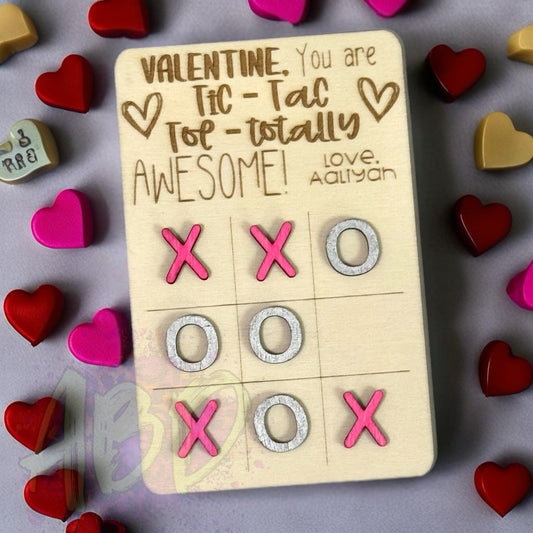 VALENTINE, You are
TiC - TaC
Toe - totally
AWESOME! Love,
Aaliyah
X X O
O O
X O X
ABD